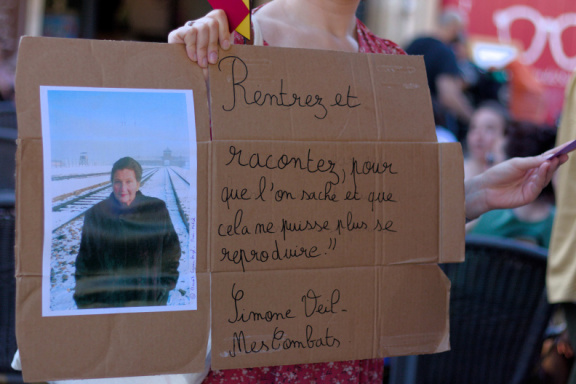 Rentrez et
racontez, pour
que l'on sache et que
cela ne puisse plus se
reproduire."
Simone Veil-
Mes Combats